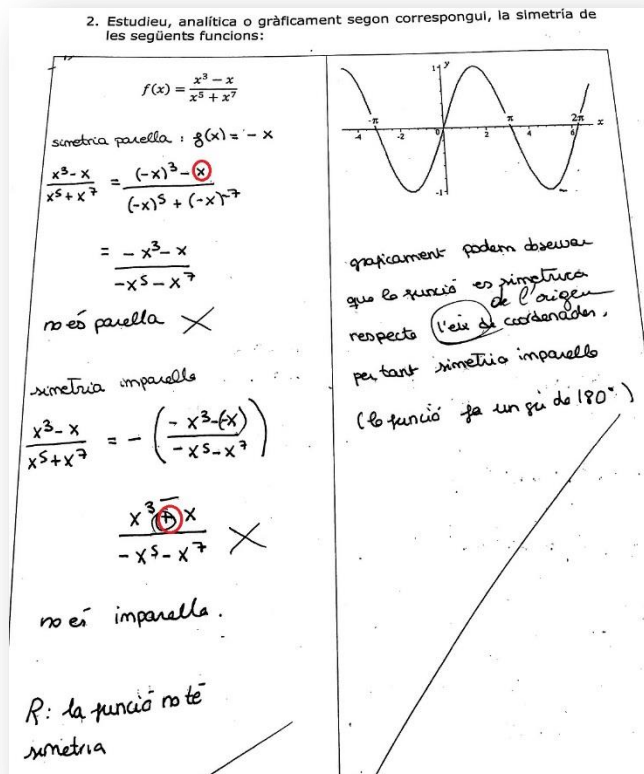 2. Estudieu, analítica o gràficament segon correspongui, la simetría de
les següents funcions:
f(x) = (x³ − x)/(x⁵ + x⁷)
simetria parella : f(x) = − x
(x³ - x)/(x⁵ + x⁷) = ((-x)³ - x)/((-x)⁵ + (-x)⁻⁷)
= (- x³ - x)/(-x⁵ - x⁷)
no és parella X
simetria imparella
(x³ - x)/(x⁵ + x⁷) = - ((- x³ - (-x))/(-x⁵ - x⁷))
(x³ + x)/(-x⁵ - x⁷) X
no és imparella.
R: la funció no té
simetria
1 y
-π π 2π x
-4 -2 0 2 4 6
-1
graficament podem observar
que la funció es simetrica
de l'origen
respecte l'eix de coordenades,
per tant simetria imparella
(la funció fa un gir de 180°)